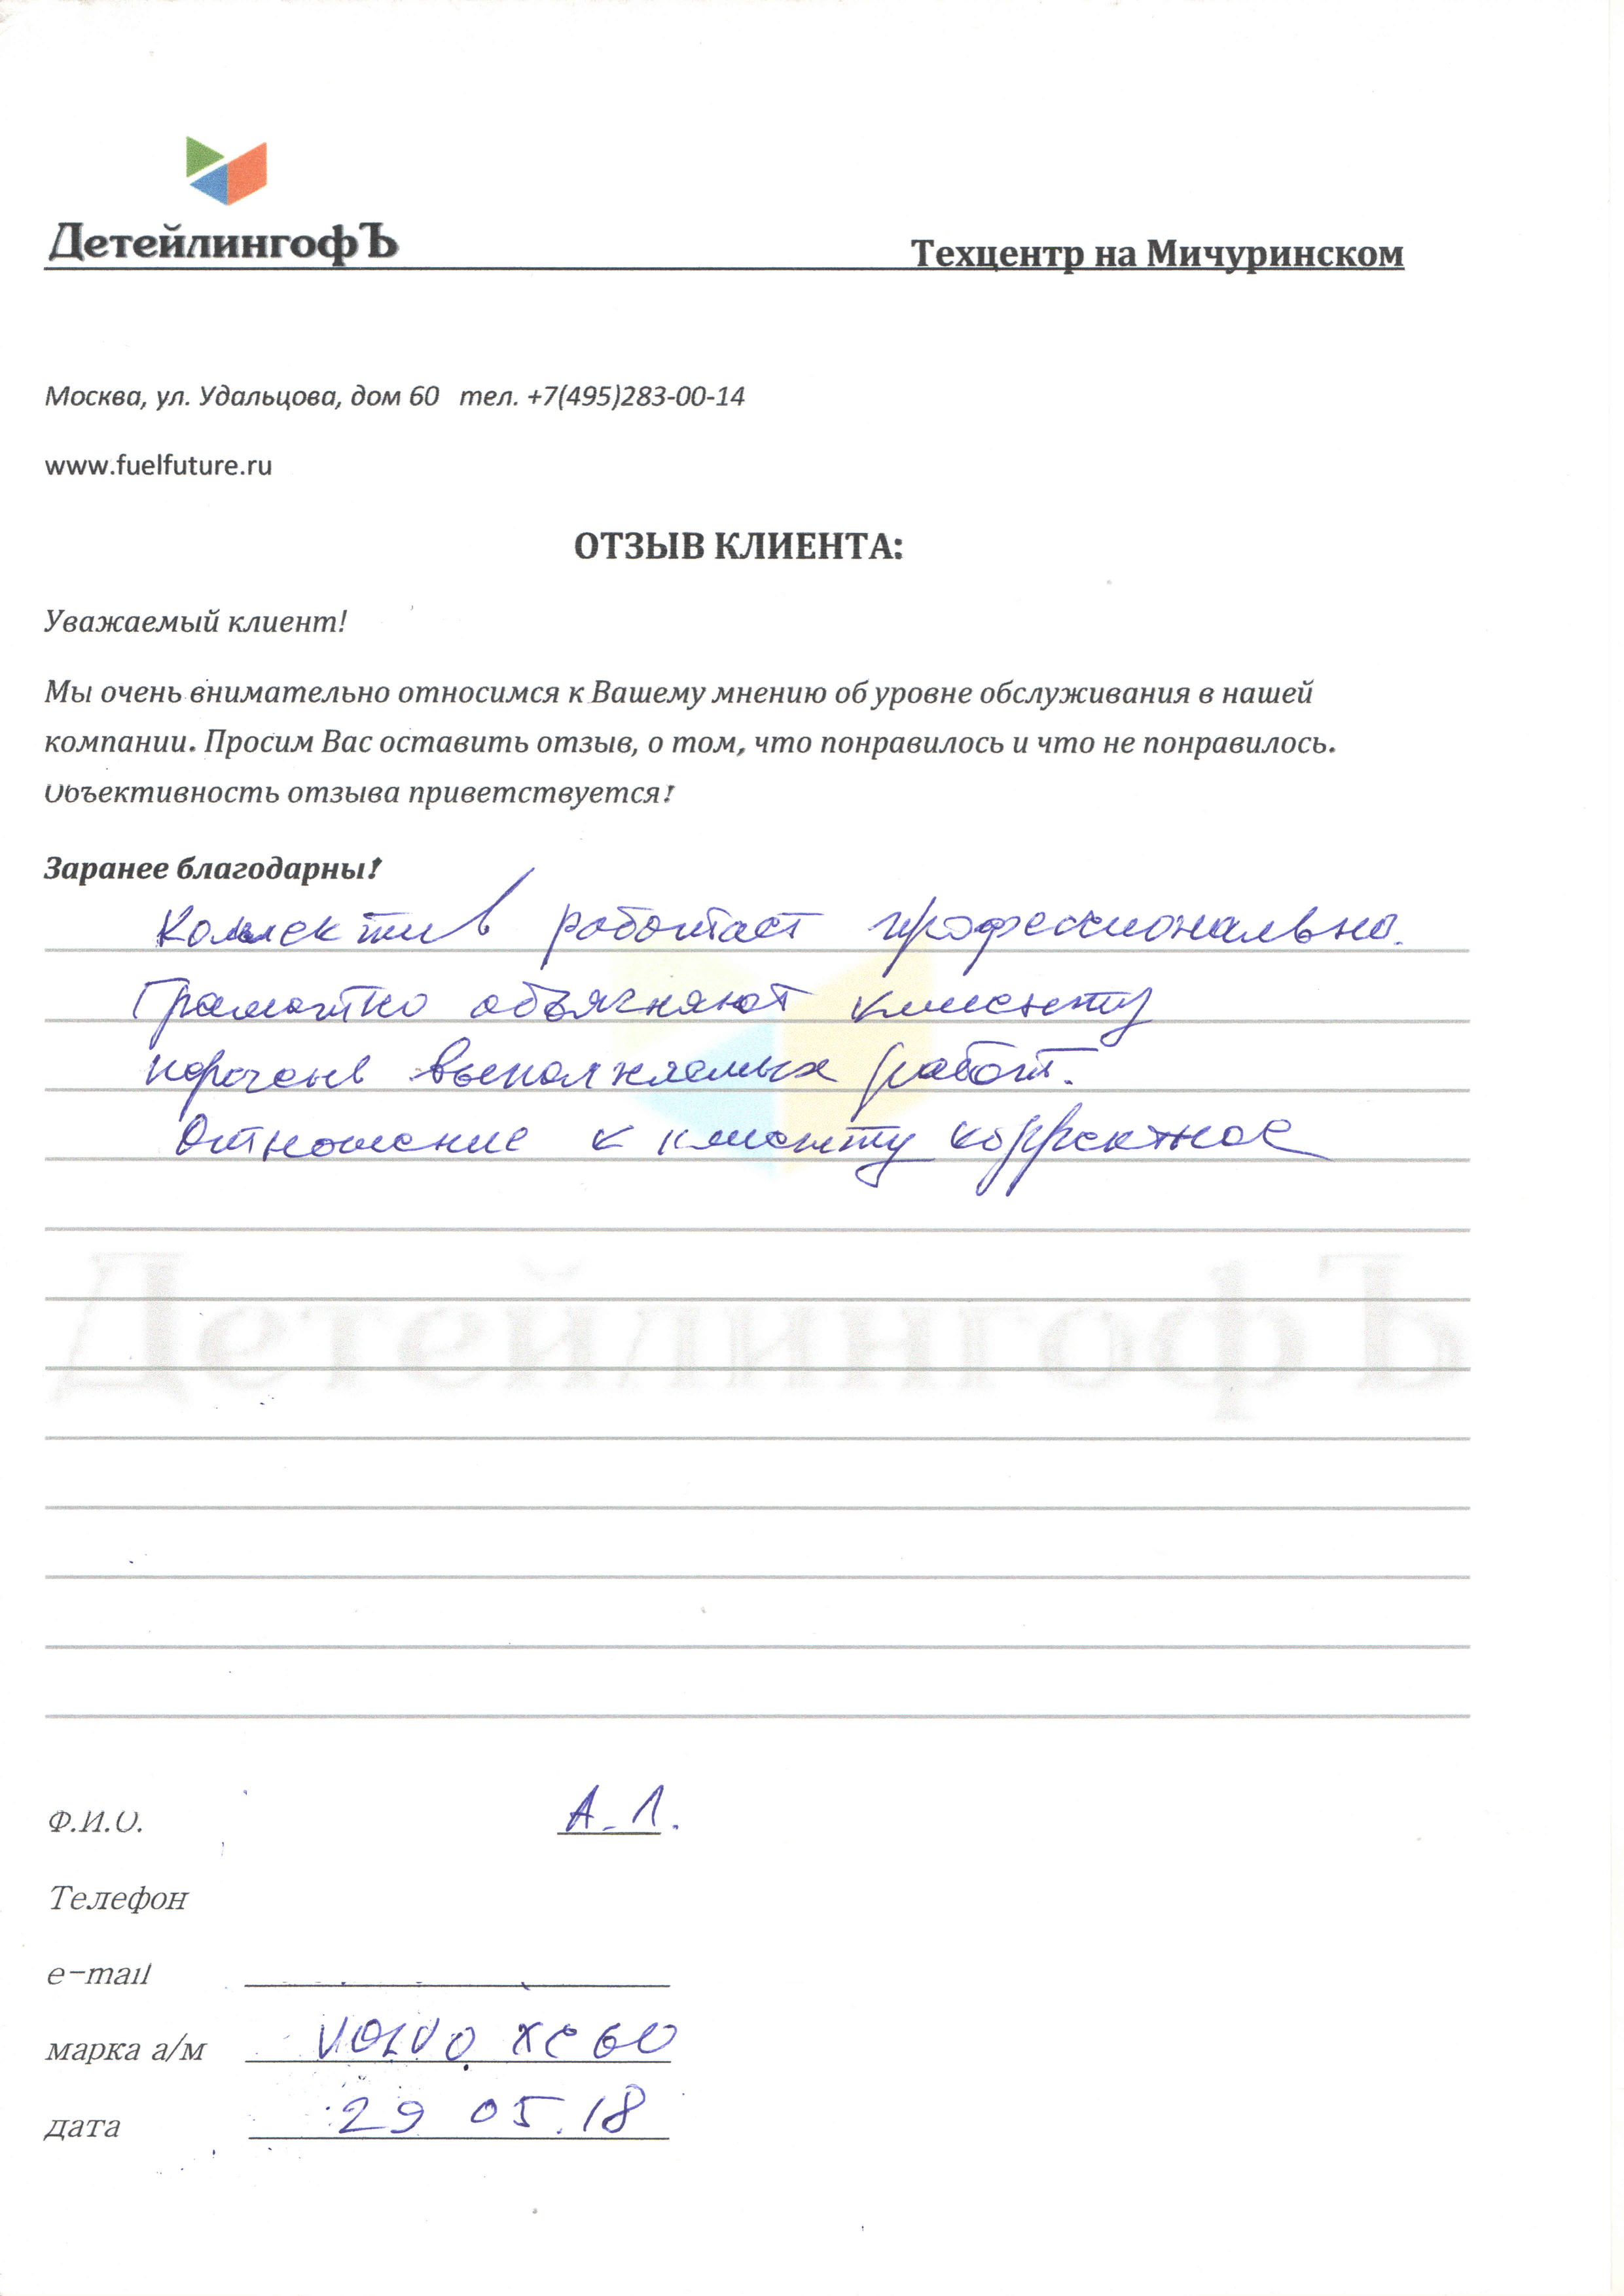 ДетейлингофЪ
Техцентр на Мичуринском
Москва, ул. Удальцова, дом 60 тел. +7(495)283-00-14
www.fuelfuture.ru
ОТЗЫВ КЛИЕНТА:
Уважаемый клиент!
Мы очень внимательно относимся к Вашему мнению об уровне обслуживания в нашей
компании. Просим Вас оставить отзыв, о том, что понравилось и что не понравилось.
Объективность отзыва приветствуется!
Заранее благодарны!
Коллектив работает профессионально.
Грамотно объясняют клиенту
перечень выполняемых работ.
Отношение к клиенту корректное
ДетейлингофЪ
Ф.И.О. А.Л.
Телефон
e-mail
марка а/м VOLVO XC 60
дата 29 05.18